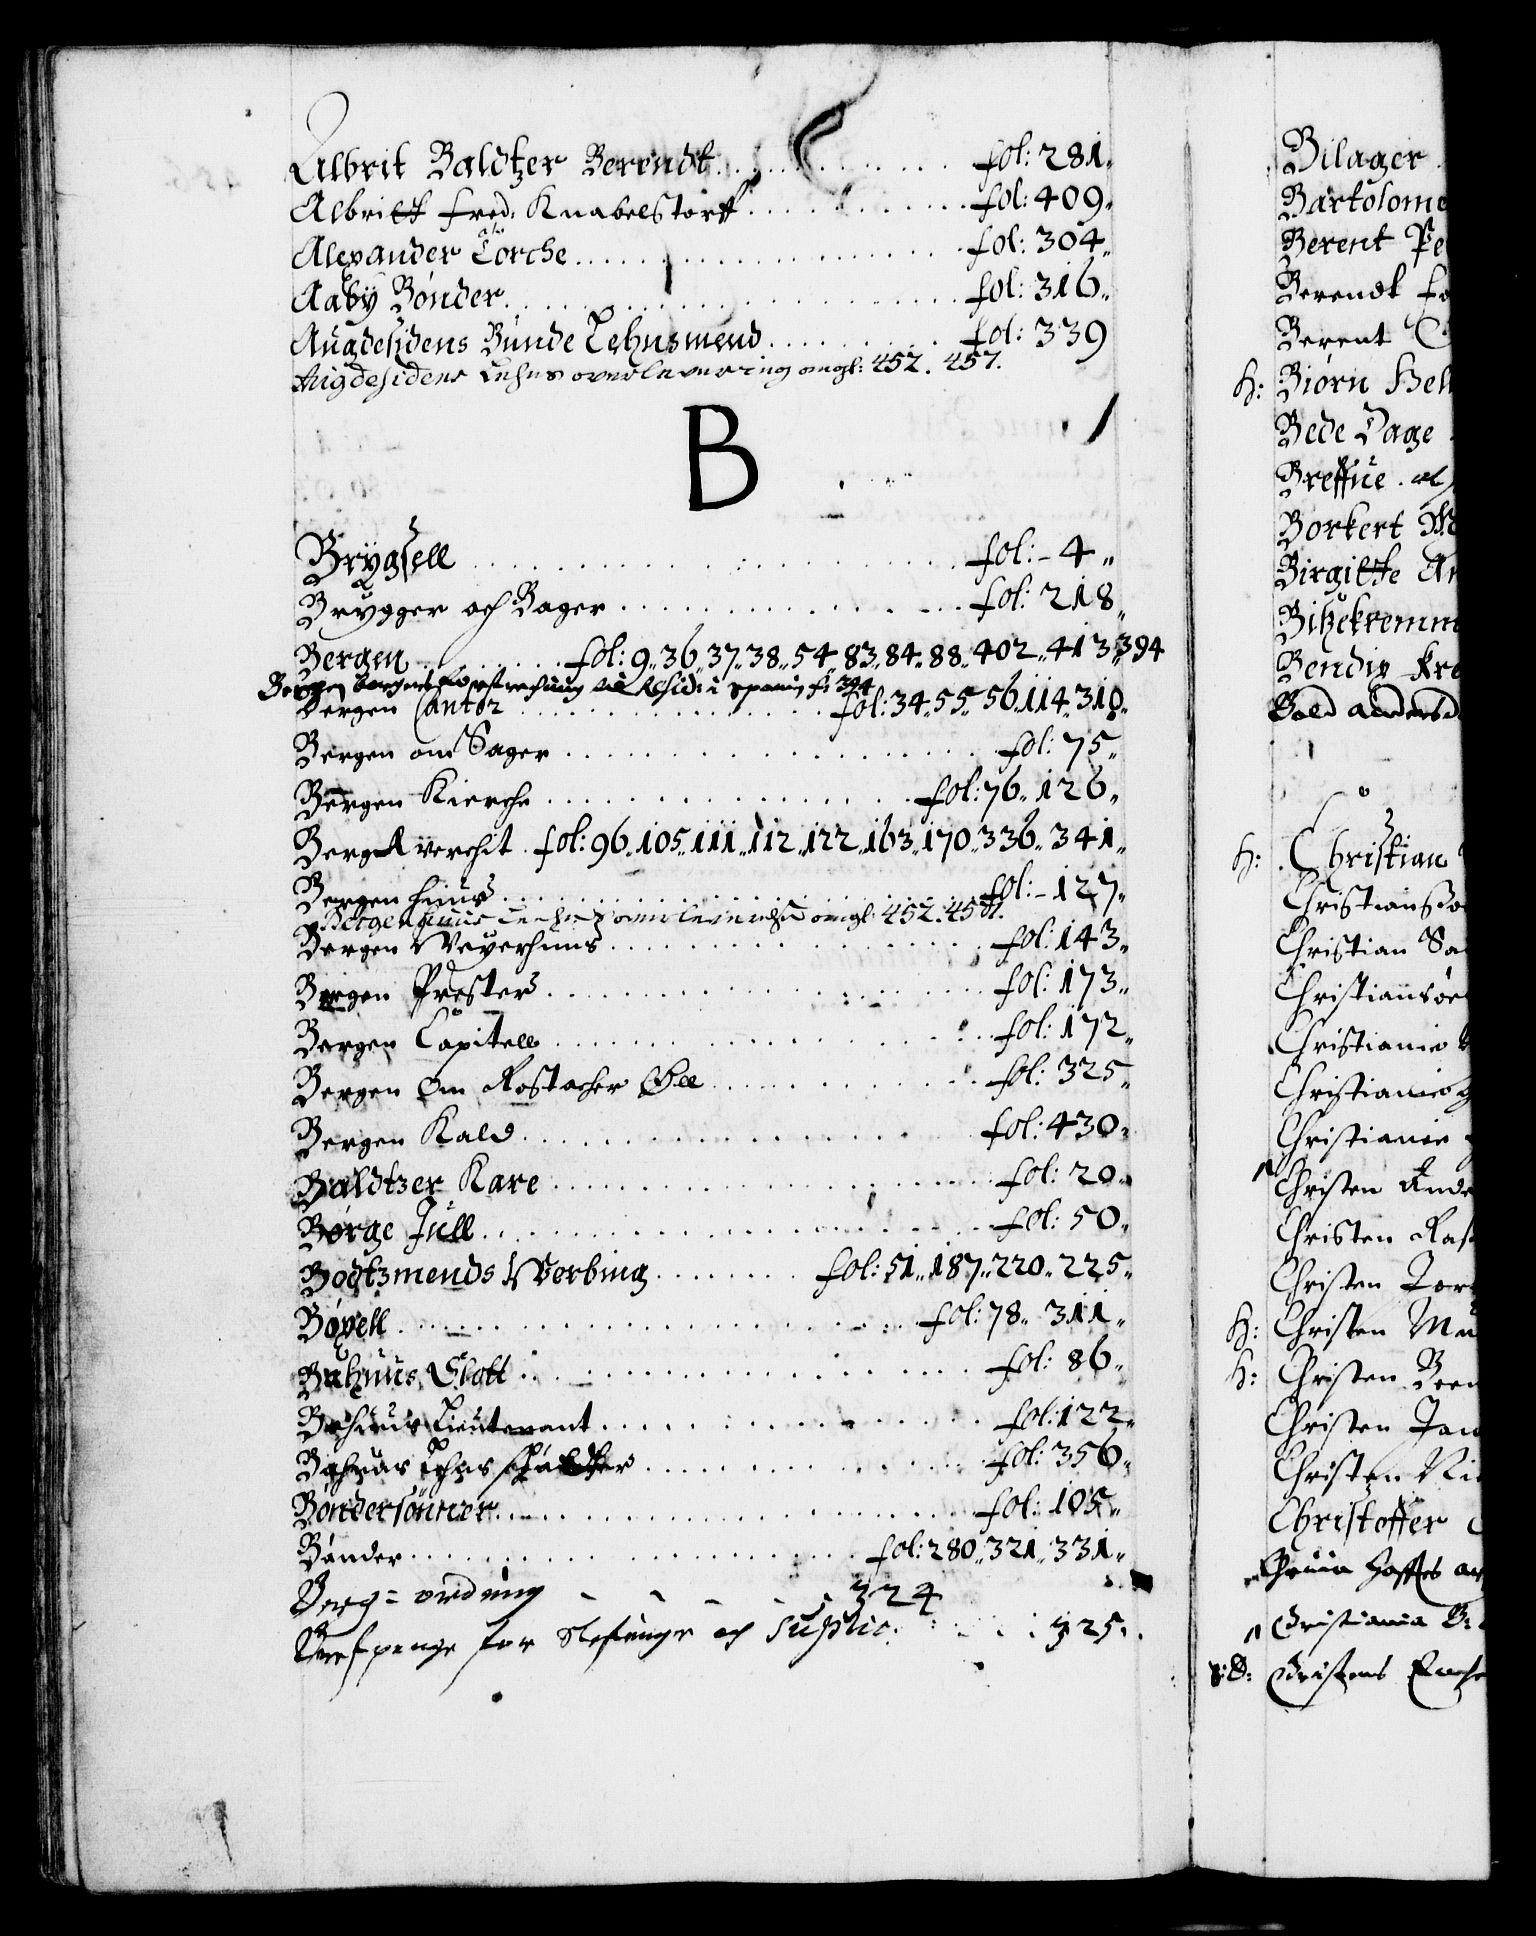 Albrit Baldtzer Berendt . . . . . . fol: 281.
Albritt Fred: Knabelstorff . . . . . . fol: 409.
Alexander Corche . . . . . . fol: 304.
Aaby Bønder . . . . . . fol: 316.
Augdesidens Bunde Lehnsmend . . . . . . fol: 339
Augdesidens Lehns overlevering angl: 452. 457.
B
Brygsell . . . . . . fol: 4.
Brygger och Bager . . . . . . fol: 218.
Bergen . . . . . . fol: 9. 36. 37. 38. 54. 83. 84. 88. 402. 413. 394
Bergen borgers Resid: i Spanig f: 394
Bergen Cantor . . . . . . fol: 34. 55. 56. 114. 310.
Bergen om Sager . . . . . . fol: 75.
Bergen Kierche . . . . . . fol: 76. 126.
Berg Averchit . fol: 96. 105. 111. 112. 122. 163. 170. 336. 341.
Bergenhuus . . . . . . fol: 127.
Bergenhuus Lehns angl: 452. 457.
Bergen Weyerhuus . . . . . . fol: 143.
Bergen Prester . . . . . . fol: 173.
Bergen Capitell . . . . . . fol: 172.
Bergen Om Rostocher Øll . . . . . . fol: 325.
Bergen Kald . . . . . . fol: 430.
Baldtzer Kare . . . . . . fol: 20.
Børge Jull . . . . . . fol: 50.
Bodtzmends Werbing . . . . . . fol: 51. 187. 220. 225.
Bøxell . . . . . . fol: 78. 311.
Bahuus Slott . . . . . . fol: 86.
Bahuus Lieutenant . . . . . . fol: 122.
Bahuus Lehns . . . . . . fol: 356.
Bøndersønner . . . . . . fol: 105.
Bønder . . . . . . fol: 280. 321. 331.
Berg = ordning - - - 324
for och Suplic: . . . 325.
Bilager
Bartolome
Berent Pe
Berendt Fo
Berent
H: Biørn Hel
Bede Dage
Breffue
Borkert
Birgitte An
Bitzekremme
Bendix Kre
C
H: Christian
Christian Sa
Christiansøe
Christianie
Christianie
Christianie
Christen Ande
Christen Ras
Christen Tor
H: Christen Mu
H: Christen
Christen
Christen Ni
Christoffer
Christiania B:
Christens